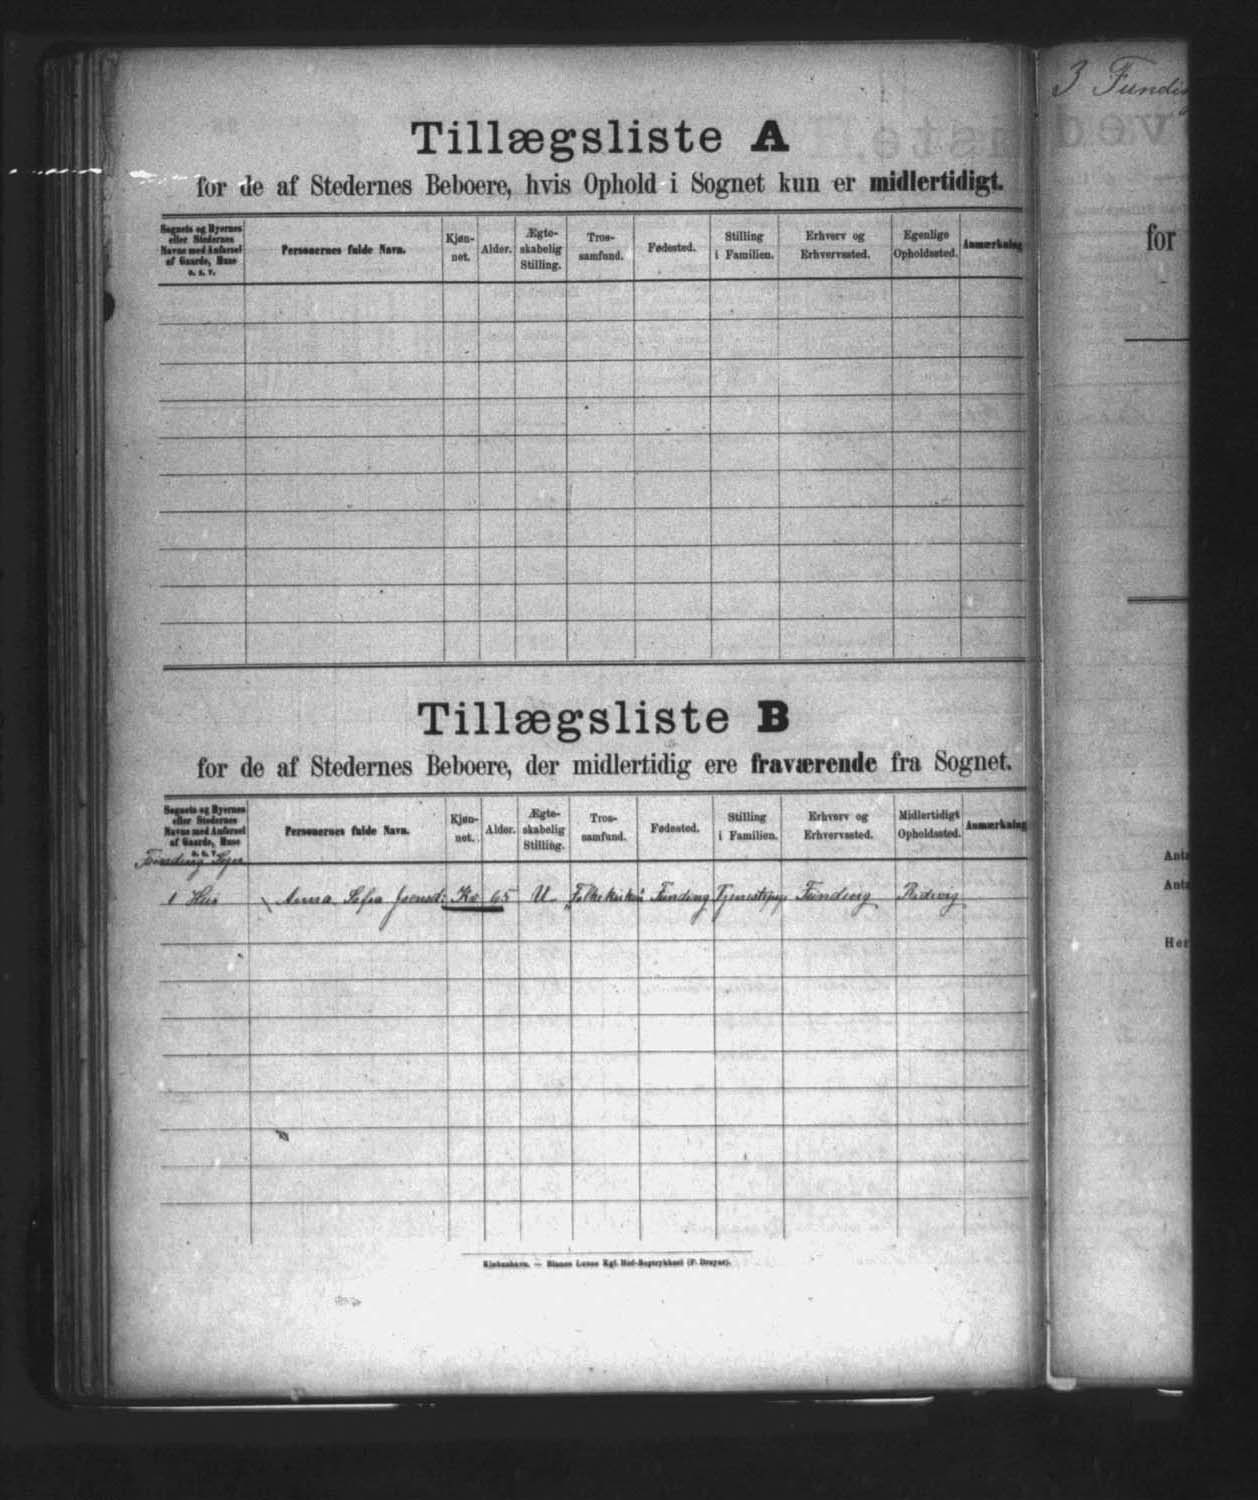 Tillægsliste A
for de af Stedernes Beboere, hvis Ophold i Sognet kun er midlertidigt.
Sognets og Byernes eller Stedernes Navne med Anførsel af Gaarde, Huse o. s. v.
Personernes fulde Navn.
Kjøn-net.
Alder.
Ægte-skabelig Stilling.
Tros-samfund.
Fødested.
Stilling i Familien.
Erhverv og Erhvervssted.
Egenlige Opholdssted.
Anmærkning
Tillægsliste B
for de af Stedernes Beboere, der midlertidig ere fraværende fra Sognet.
Sognets og Byernes eller Stedernes Navne med Anførsel af Gaarde, Huse o. s. v.
Personernes fulde Navn.
Kjøn-net.
Alder.
Ægte-skabelig Stilling.
Tros-samfund.
Fødested.
Stilling i Familien.
Erhverv og Erhvervssted.
Midlertidigt Opholdssted.
Anmærkning
Funding
1 Hus Anna Sofia Kv 65 U Folkekirken Funding Funding
Kjøbenhavn. — Bianco Lunos Kgl. Hof-Bogtrykkeri (F. Dreyer).
3 Fundin
for
Anta
Anta
Her